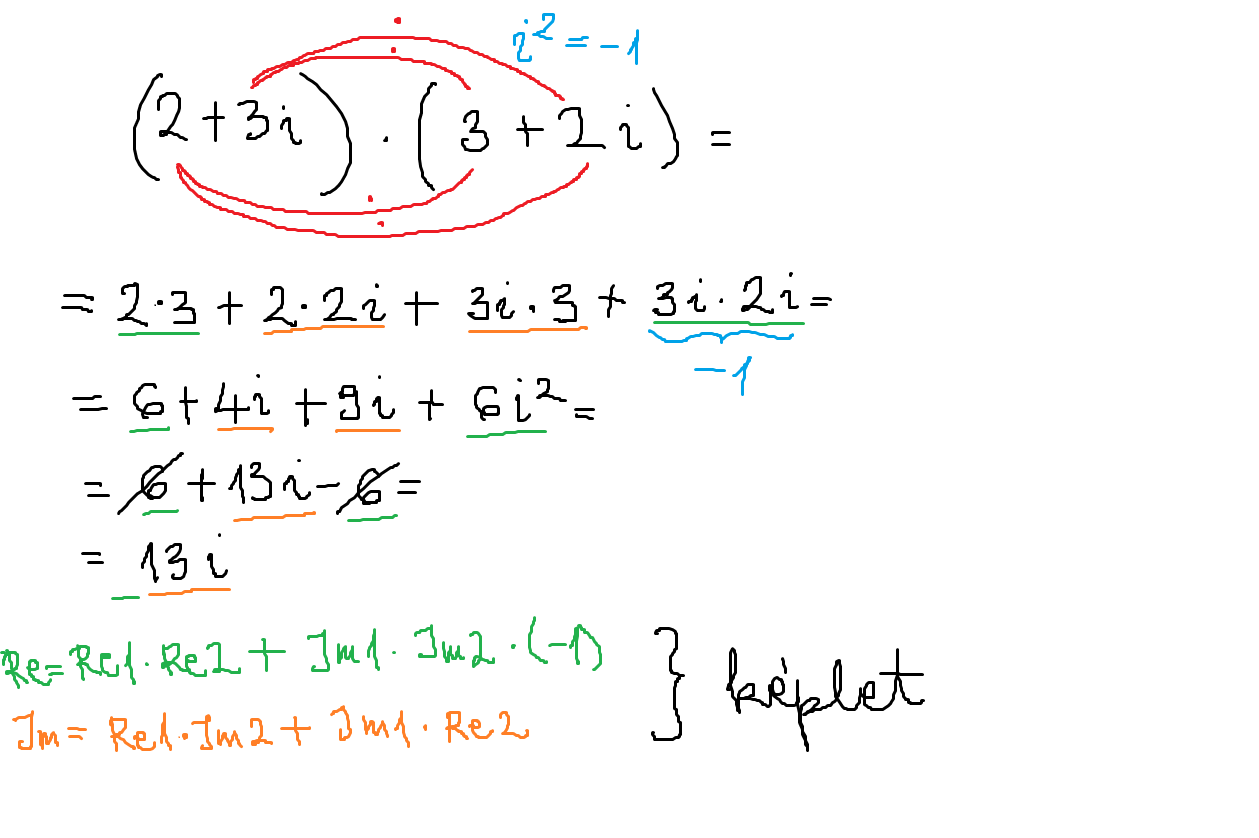 i² = -1
(2+3i) · (3+2i) =
= 2·3 + 2·2i + 3i·3 + 3i·2i =
-1
= 6 + 4i + 9i + 6i² =
= 6 + 13i - 6 =
= 13i
Re = Re1·Re2 + Im1·Im2·(-1)
Im = Re1·Im2 + Im1·Re2
} képlet